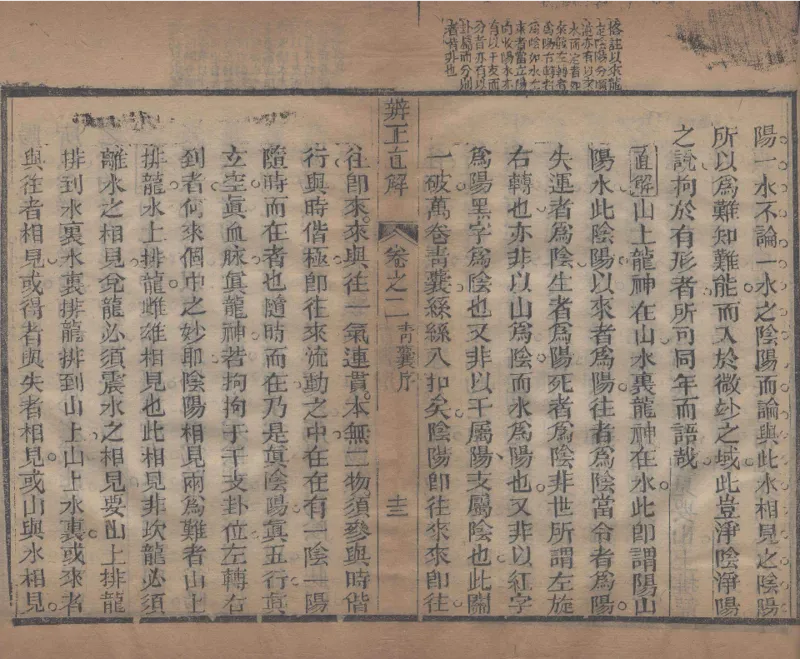 俗註以來龍
定陰陽分順
逆亦有以來
水而定者如
來龍左轉者
爲陽右轉者
爲陰如水左
來者當立陽
向收陽水亦
有以干支而
分者亦有以
卦屬而分別
者皆非也
陽一水不論一水之陰陽而論與此水相見之陰陽
所以爲難知難能而入於微玅之域此豈淨陰淨陽
之說拘於有形者所可同年而語哉
直解山上龍神在山水裏龍神在水此卽謂陽山
陽水此陰陽以來者爲陽往者爲陰當令者爲陽
失運者爲陰生者爲陽死者爲陰非世所謂左旋
右轉也亦非以山爲陰而水爲陽也又非以紅字
爲陽黑字爲陰也又非以干屬陽支屬陰也此關
一破萬卷靑囊絲絲入扣矣陰陽卽往來來卽往
辨正直解 卷之二 靑囊序 十三
往卽來來與往一氣連貫本無二物須參與時偕
行與時偕極卽往來流動之中在在有一陰一陽
隨時而在者也隨時而在乃是眞陰陽眞五行眞
立空眞血脉眞龍神若拘拘于干支卦位左轉右
到者何來個中之妙耶陰陽相見兩爲難者山上
排龍水上排龍雌雄相見也此相見非坎龍必須
離水之相見兌龍必須震水之相見要山上排龍
排到水裏水裏排龍排到山上山上水裏或來者
與往者相見或得者與失者相見或山與水相見